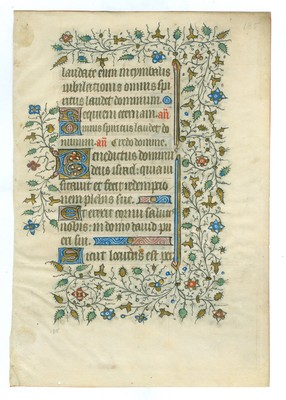 laudate eum in cymbalis
iubilationis omnis spi
ritus laudet dominum
Requiem eternam. añ
Omnis spiritus laudet do
minum. añ Credo domine.
Benedictus dominus
deus israel: quia ui
sitauit et fecit redempcio
nem plebis sue.
Et erexit cornu salutis
nobis: in domo dauid pu
eri sui.
Sicut locutus est per